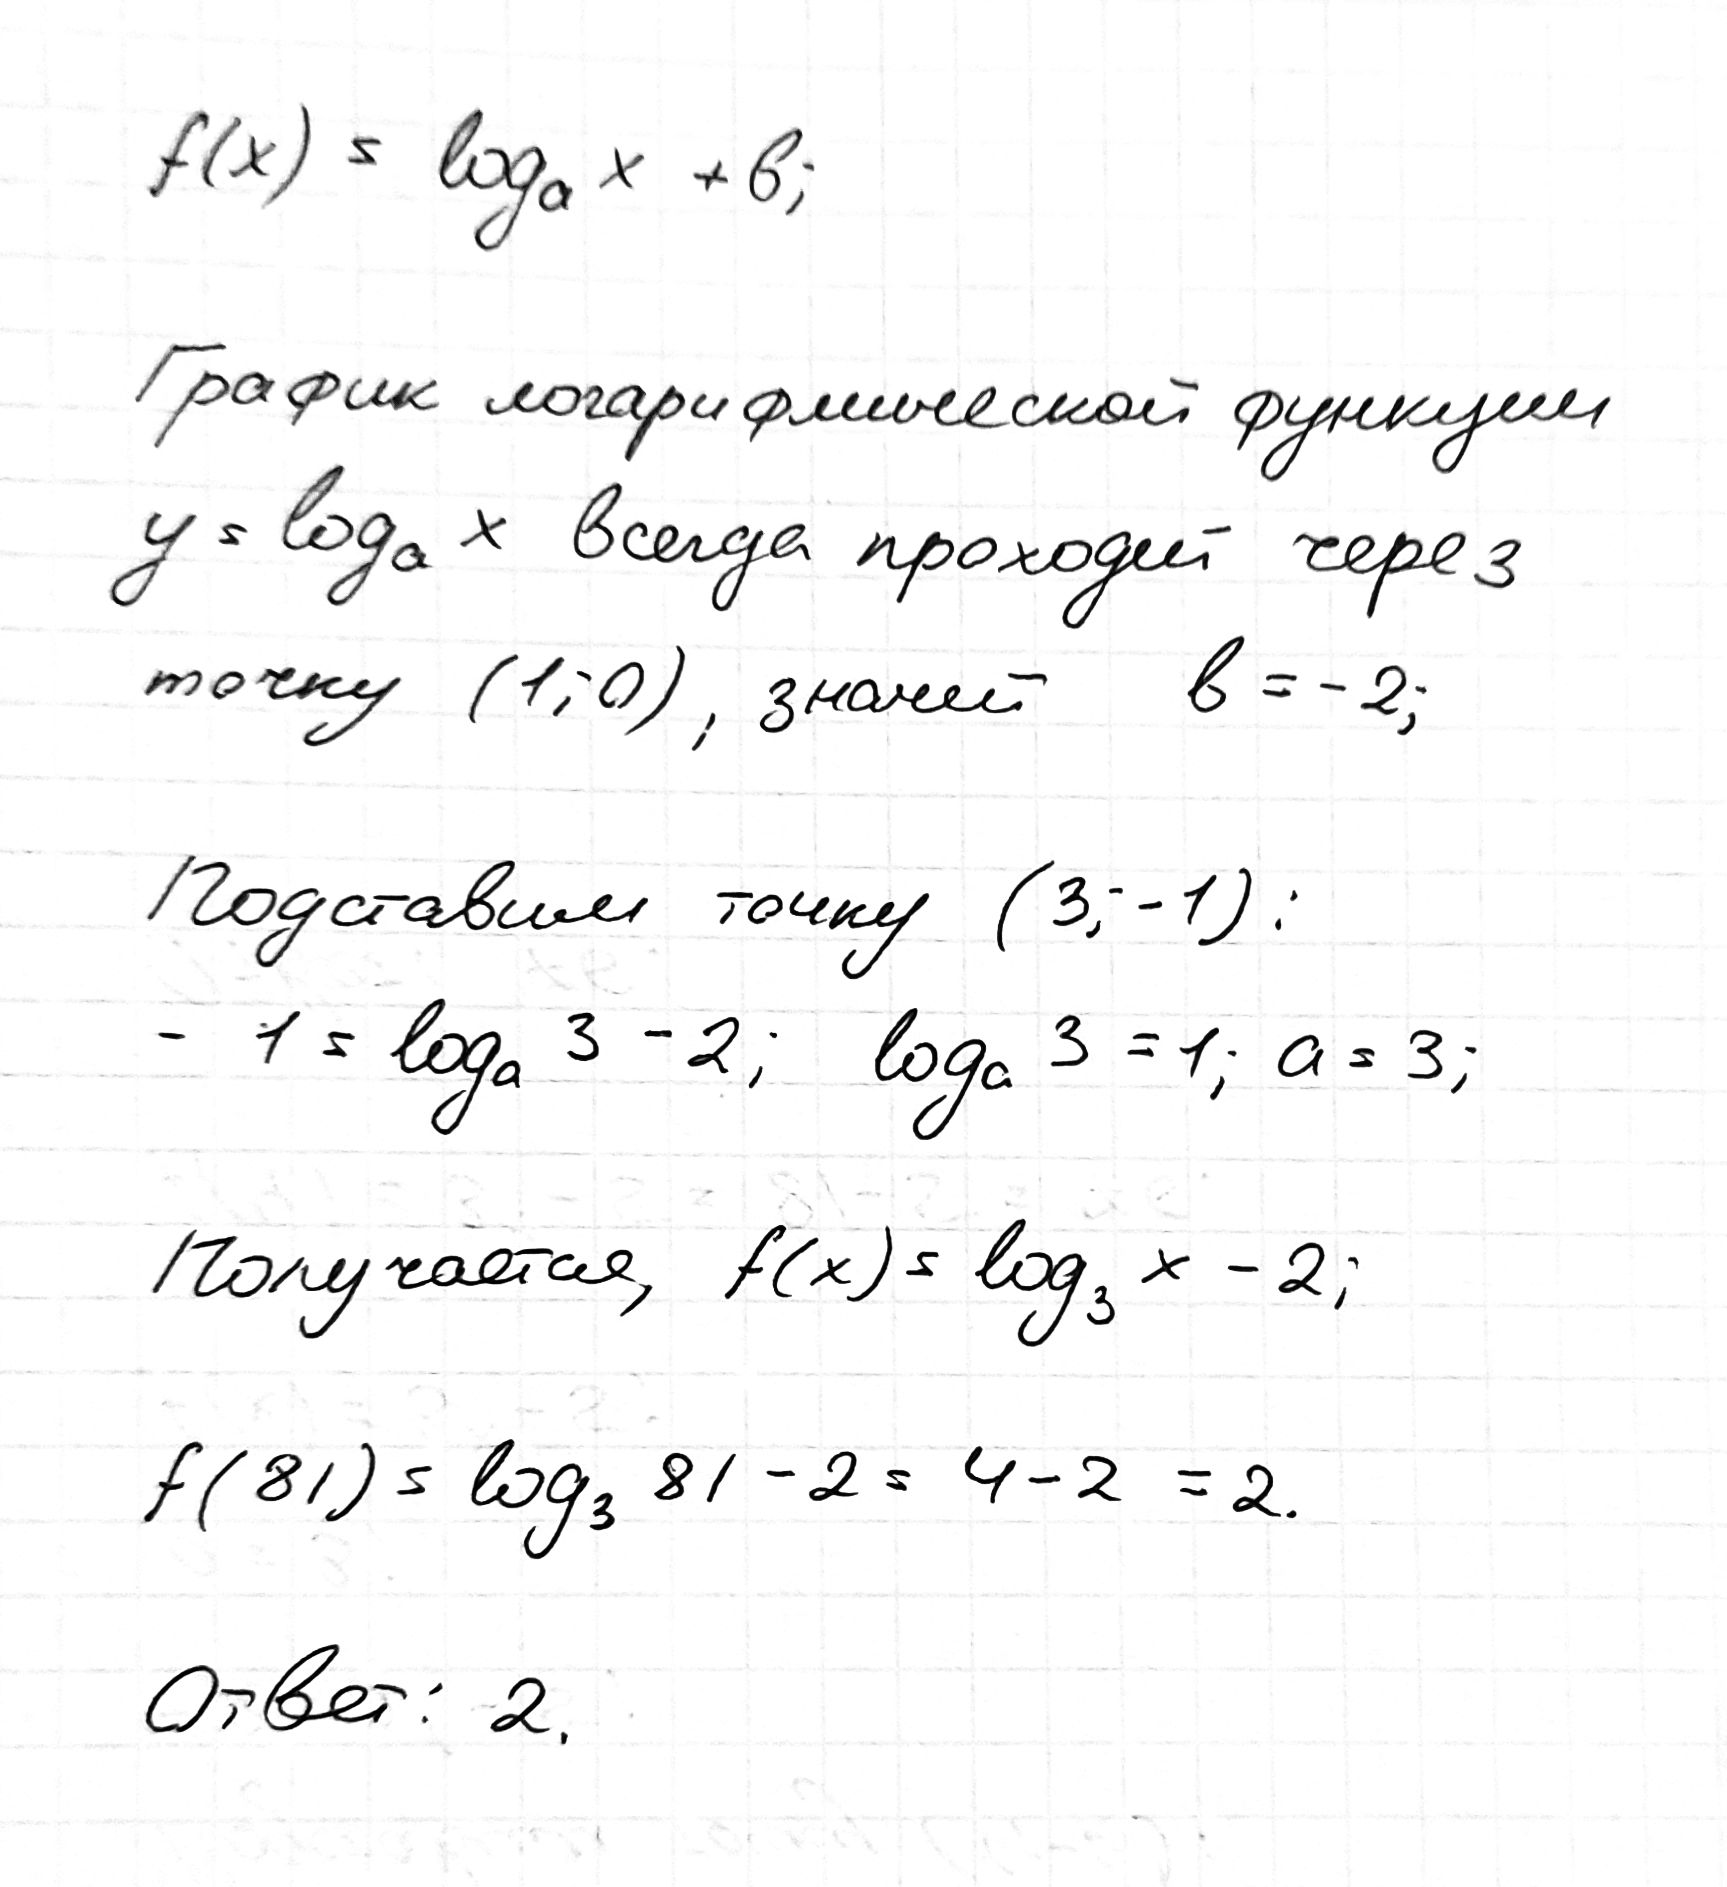 f(x) = logₐ x + b;
График логарифмической функции
y = logₐ x всегда проходит через
точку (1; 0), значит b = -2;
Подставим точку (3; -1):
- 1 = logₐ 3 - 2; logₐ 3 = 1; a = 3;
Получается, f(x) = log₃ x - 2;
f(81) = log₃ 81 - 2 = 4 - 2 = 2.
Ответ: 2.